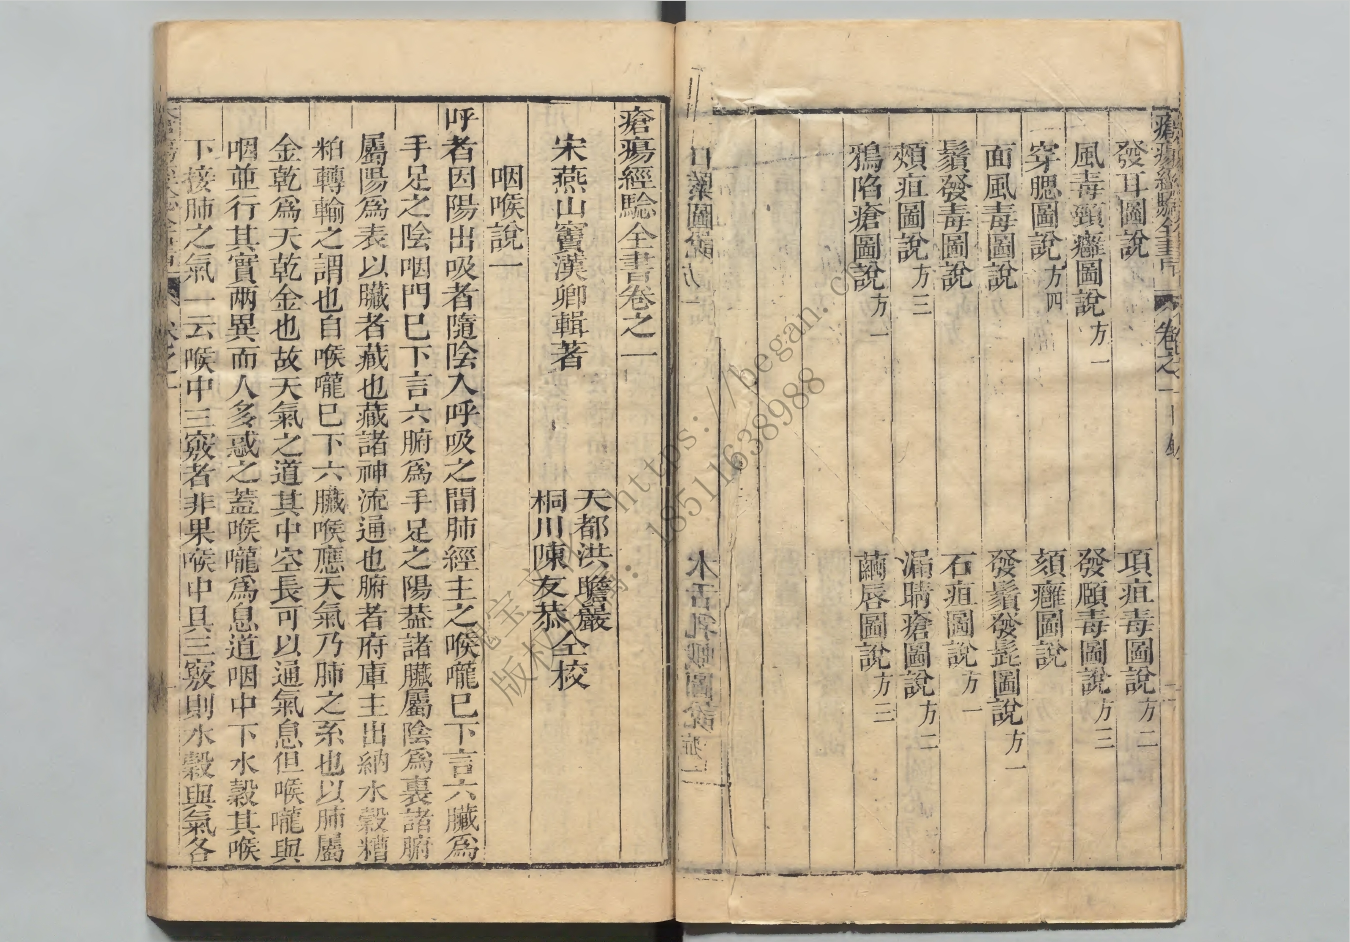 瘡瘍經驗全書 卷之一 目錄
發耳圖說
項疽毒圖說方二
風毒頸癰圖說方一
發頤毒圖說方三
穿腮圖說方四
頦癰圖說
面風毒圖說
發鬚發髭圖說方一
鬚發毒圖說
石疽圖說方一
頰疽圖說方三
漏睛瘡圖說方二
鴉陷瘡圖說方一
繭唇圖說方三
瘡瘍經驗全書卷之一
宋燕山竇漢卿輯著
天都洪瞻巖
桐川陳友恭
仝校
咽喉說一
呼者因陽出吸者隨陰入呼吸之間肺經主之喉嚨巳下言六臟爲
手足之陰咽門巳下言六腑爲手足之陽葢諸臟屬陰爲裏諸腑
屬陽爲表以臟者藏也藏諸神流通也腑者府庫主出納水穀糟
粕轉輸之謂也自喉嚨巳下六臟喉應天氣乃肺之系也以肺屬
金乾爲天乾金也故天氣之道其中空長可以通氣息但喉嚨與
咽並行其實兩異而人多惑之蓋喉嚨爲息道咽中下水穀其喉
下接肺之氣一云喉中三竅者非果喉中具三竅則水穀與氣各
https://began.co
18511638988